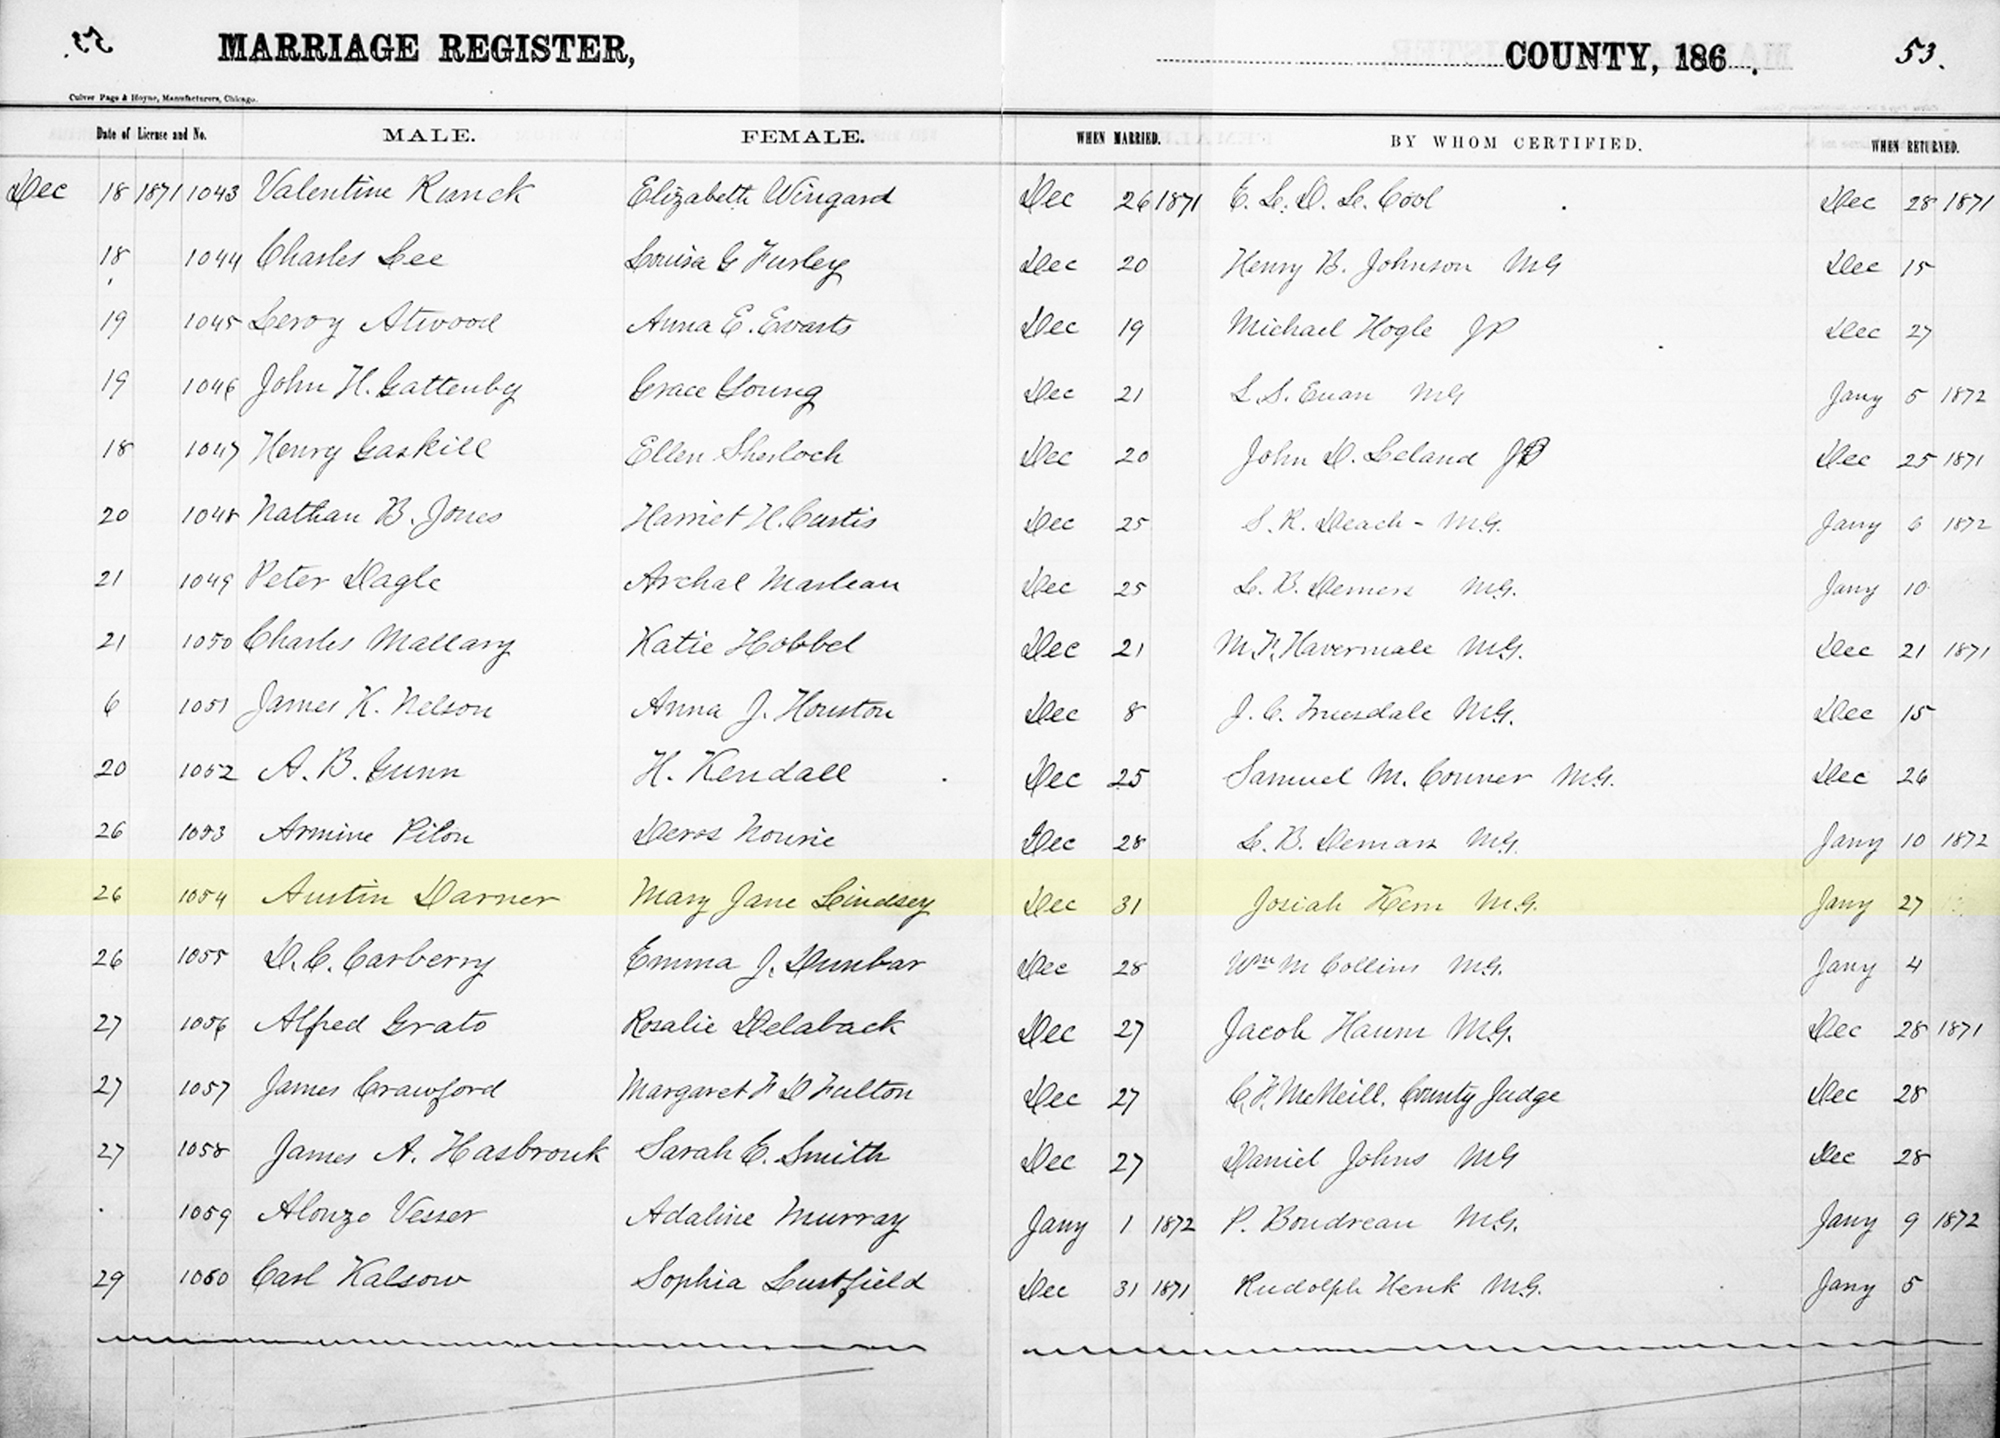 53. MARRIAGE REGISTER, COUNTY, 186 . 53.
Culver Page & Hoyne, Manufacturers, Chicago.
Date of License and No. MALE. FEMALE. WHEN MARRIED. BY WHOM CERTIFIED. WHEN RETURNED.
Dec 18 1871 1043 Valentine Ranck Elizabeth Wingard Dec 26 1871 E. L. D. L. Cool Dec 28 1871
18 1044 Charles Lee Louisa G Furley Dec 20 Henry B. Johnson MG Dec 15
19 1045 Leroy Atwood Anna E. Evarts Dec 19 Michael Hogle JP Dec 27
19 1046 John H. Gattenby Grace Young Dec 21 L. S. MG Jany 5 1872
18 1047 Henry Gaskill Ellen Sherloch Dec 20 John D. Leland JP Dec 25 1871
20 1048 Nathan B. Jones Harriet H. Curtis Dec 25 S. R. Deach - MG. Jany 6 1872
21 1049 Peter Dagle Archal Dec 25 L. B. Demers MG. Jany 10
21 1050 Charles Mallary Katie Hobbel Dec 21 M. F. Havermale MG. Dec 21 1871
6 1051 James K. Nelson Anna J. Houston Dec 8 J. C. Truesdale MG. Dec 15
20 1052 A. B. Gunn H. Kendall Dec 25 Samuel M. Conner MG. Dec 26
26 1053 Armine Pilon Nourie Dec 28 L. B. Demars MG. Jany 10 1872
26 1054 Austin Darner Mary Jane Lindsey Dec 31 Josiah Kern M.G. Jany 27
26 1055 D. C. Carberry Emma J. Dunbar Dec 28 Wm M Collins MG. Jany 4
27 1056 Alfred Grato Rosalie Delaback Dec 27 Jacob Haum MG. Dec 28 1871
27 1057 James Crawford Margaret F D Fulton Dec 27 C. F. McNeill. County Judge Dec 28
27 1058 James A. Hasbrouk Sarah E. Smith Dec 27 Daniel Johns MG Dec 28
1059 Alonzo Vesser Adaline Murray Jany 1 1872 P. Boudreau MG. Jany 9 1872
29 1060 Carl Kalsow Sophia Lustfield Dec 31 1871 Rudolph Henk MG. Jany 5